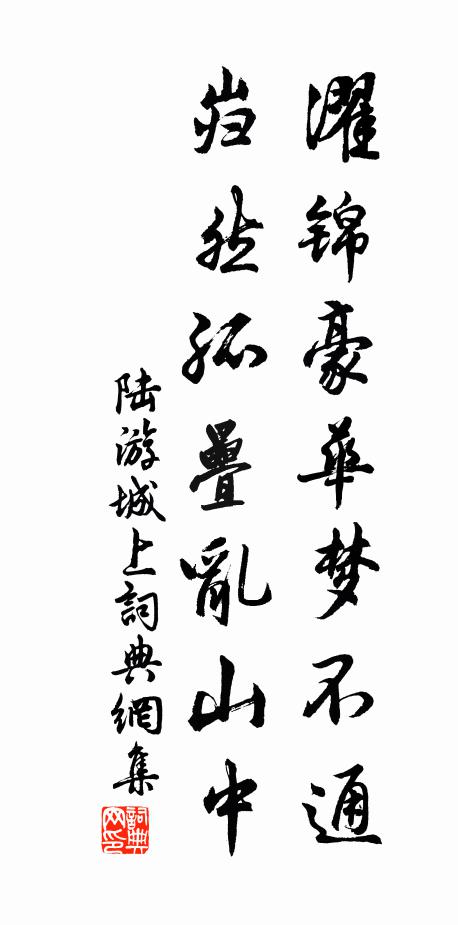 濯锦豪華梦不通
岿然孤疊亂山中
陆游城上詞典網集
詞典网印